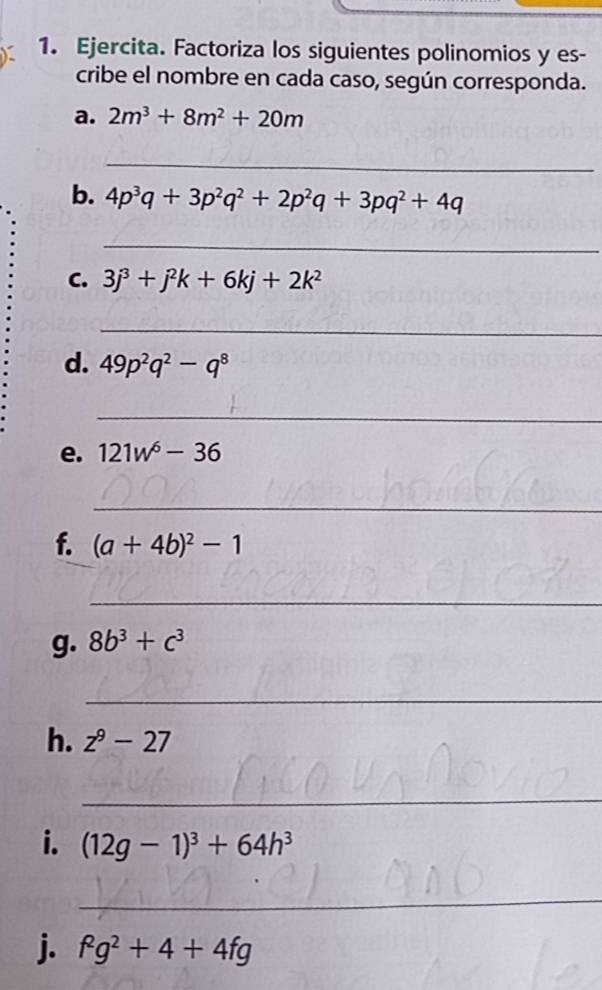 1. Ejercita. Factoriza los siguientes polinomios y es-
cribe el nombre en cada caso, según corresponda.
a. 2m³ + 8m² + 20m
b. 4p³q + 3p²q² + 2p²q + 3pq² + 4q
c. 3j³ + j²k + 6kj + 2k²
d. 49p²q² − q⁸
e. 121w⁶ − 36
f. (a + 4b)² − 1
g. 8b³ + c³
h. z⁹ − 27
i. (12g − 1)³ + 64h³
j. f²g² + 4 + 4fg